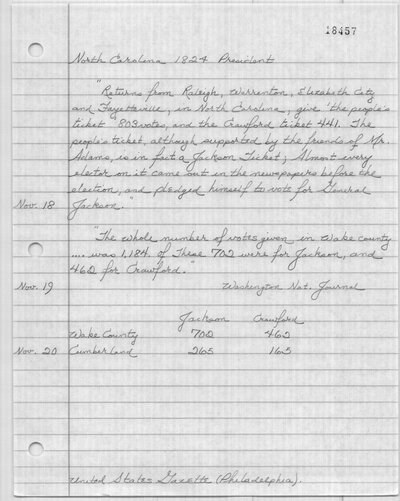 18457
North Carolina 1824 President
"Returns from Raleigh, Warrenton, Elizabeth City
and Fayetteville, in North Carolina, give 'the people's
ticket' 803 votes, and the Crawford ticket 441. The
people's ticket, although supported by the friends of Mr.
Adams, is in fact a Jackson Ticket; Almost every
elector on it came out in the newspapers before the
election, and pledged himself to vote for General
Nov. 18 Jackson."
"The whole number of votes given in Wake county
.... was 1,184. Of these 702 were for Jackson, and
462 for Crawford.
Nov. 19 Washington Nat. Journal
Jackson Crawford
Wake County 702 462
Nov. 20 Cumberland 265 165
United States Gazette (Philadelphia).